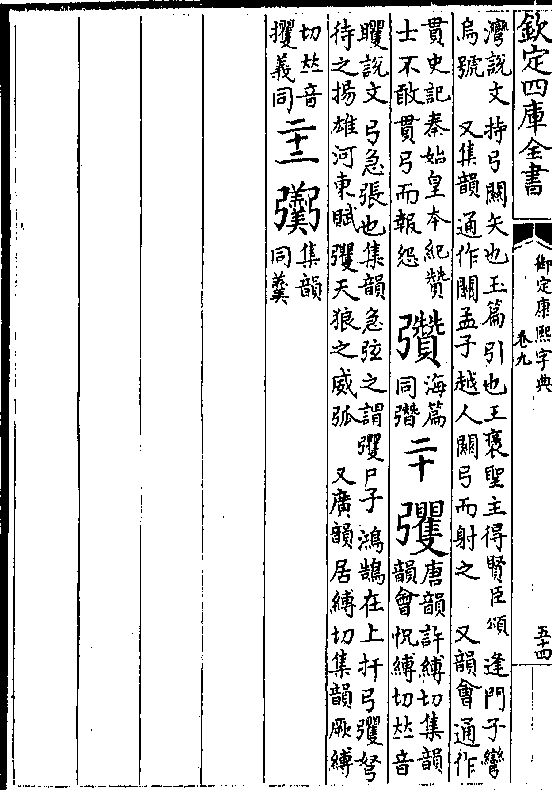 欽定四庫全書
御定康熙字典
卷九
五十四
灣說文持弓關矢也玉篇引也王褒聖主得賢臣頌逢門子彎
烏號　又集韻通作關孟子越人關弓而射之　又韻會通作
貫史記秦始皇本紀贊
士不敢貫弓而報怨
㢺
海篇
同㣅
二十
彏
唐韻許縛切集韻
韻會怳縛切𠀤音
矍說文弓急張也集韻急弦之謂彏尸子鴻鵠在上扞弓彏弩
待之揚雄河東賦彏天狼之威弧　又廣韻居縛切集韻厥縛
切𠀤音
攫義同
二十二
䰜
集韻
同羹